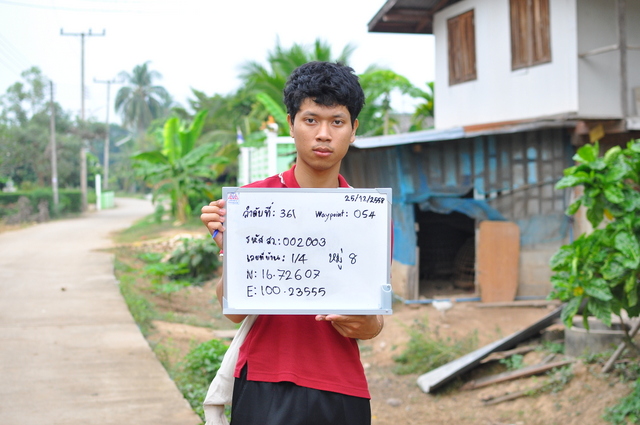 25/12/2558
ลำดับที่: 361 Waypoint: 054
รหัส สว: 002003
เลขที่บ้าน: 1/4 หมู่ 8
N: 16.72607
E: 100.23555